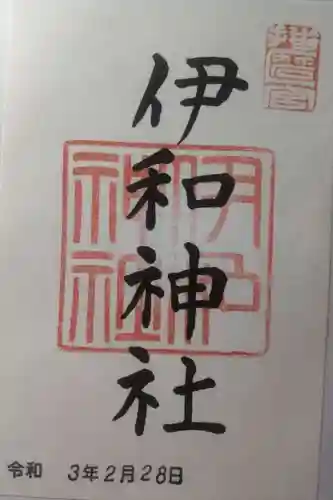 伊和神社
伊和
神社
令和 3年2月28日